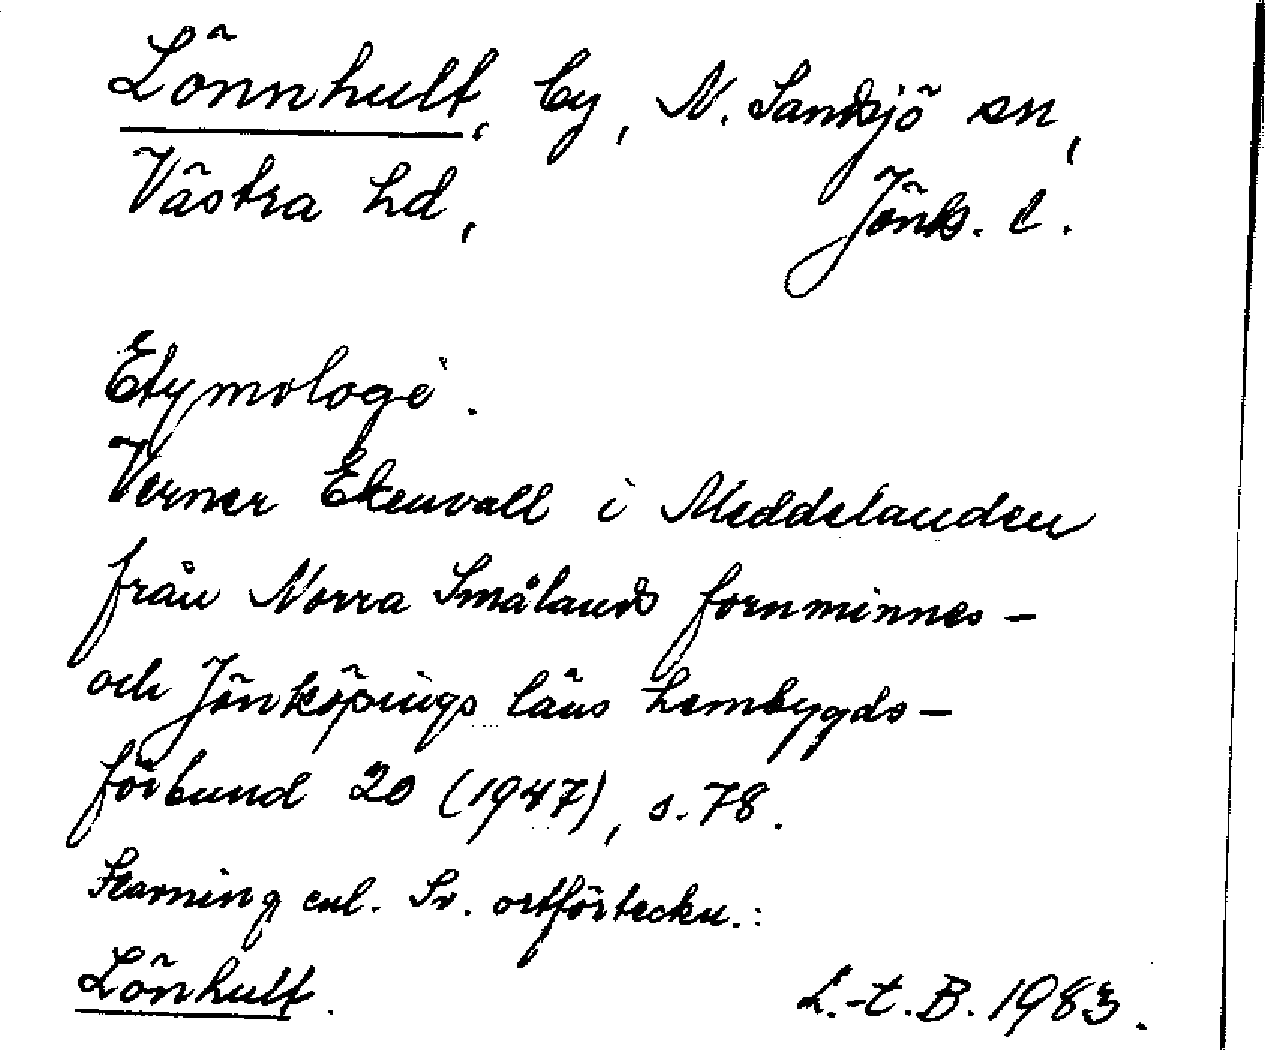 Lönnhult, by, N. Sandsjö sn,
Västra hd, Jönk. l.
Etymologi.
Verner Ekenvall i Meddelanden
från Norra Smålands fornminnes-
och Jönköpings läns hembygds-
förbund 20 (1947), s. 78.
Stavning enl. Sv. ortförteckn.:
Lönhult.
L.-t. B. 1983.